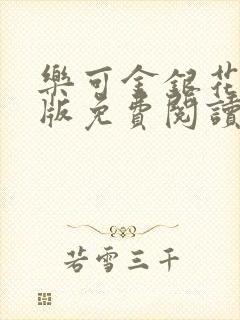 樂可金銀花
版免費閱讀
若雪三千